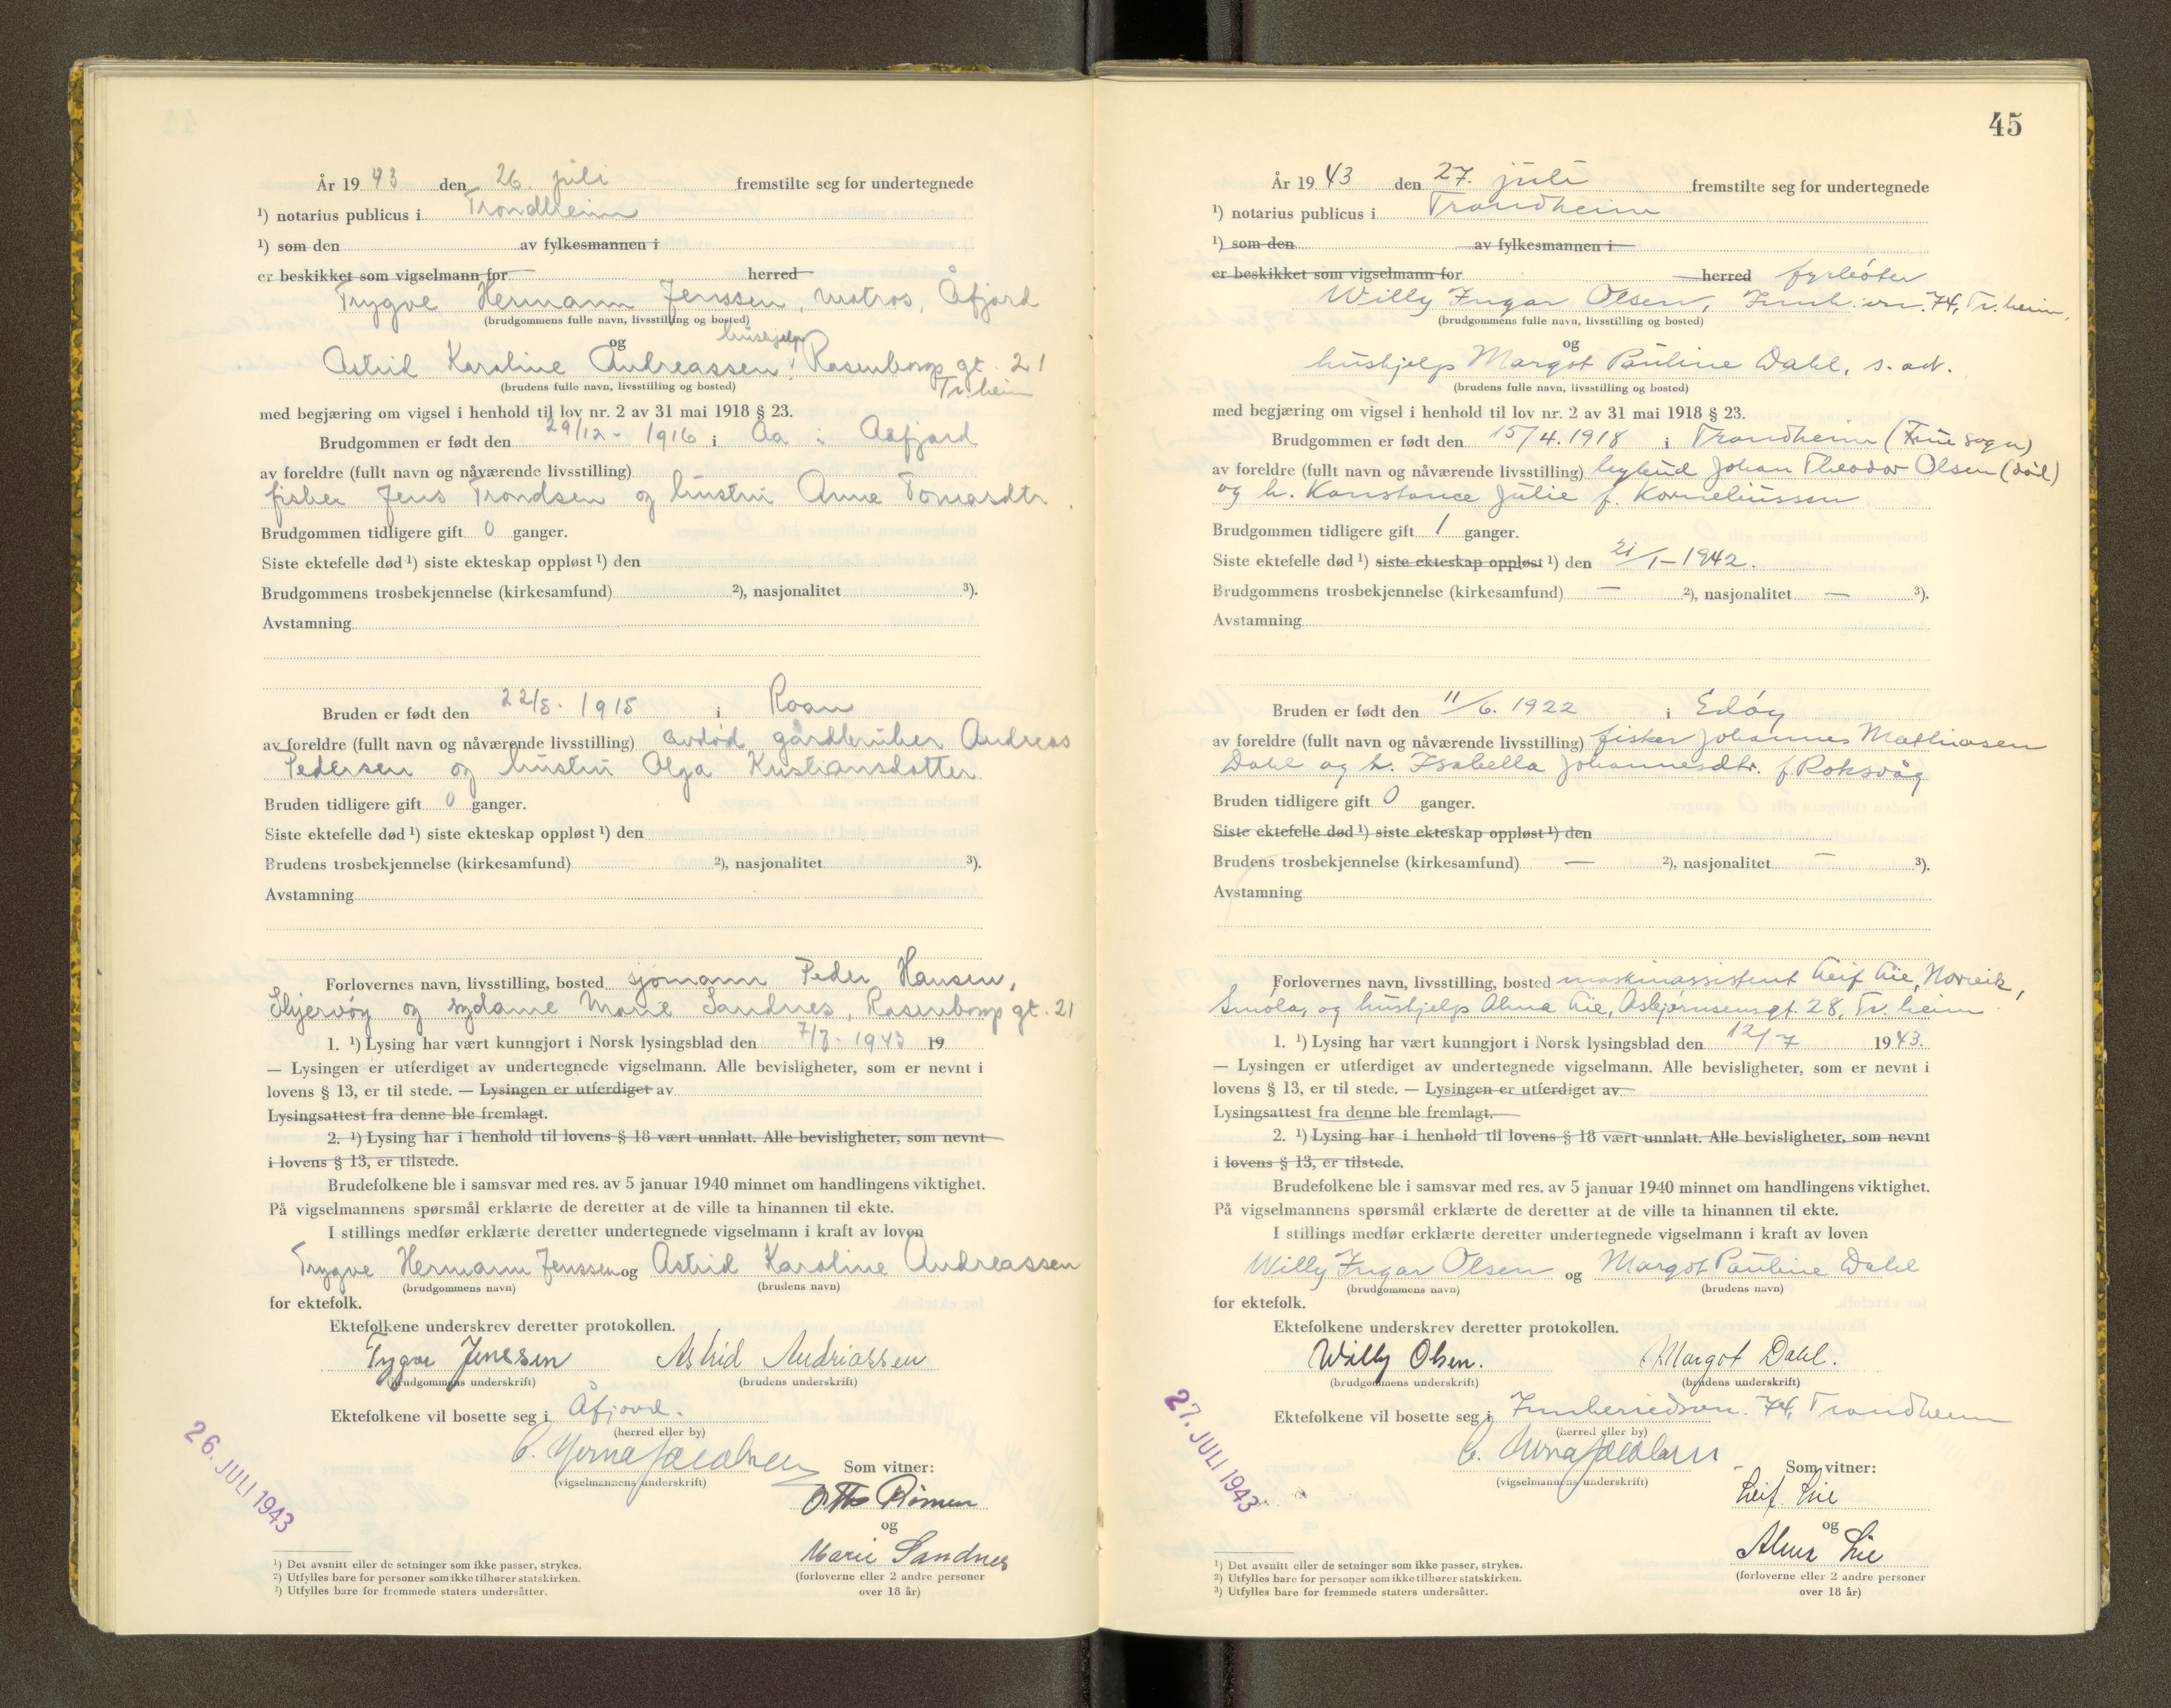 År 19 43 den 26. juli fremstilte seg for undertegnede
¹) notarius publicus i Trondheim
¹) som den av fylkesmannen i
er beskikket som vigselmann for herred
Trygve Hermann Jenssen, matros, Åfjord
(brudgommens fulle navn, livsstilling og bosted)
og hushjelp
Astrid Karoline Andreassen, Rosenborg gt. 21
(brudens fulle navn, livsstilling og bosted) Tr.heim
med begjæring om vigsel i henhold til lov nr. 2 av 31 mai 1918 § 23.
Brudgommen er født den 29/12 - 1916 i Aa i Aafjord
av foreldre (fullt navn og nåværende livsstilling)
fisker Jens Trondsen og hustru Anne Tomasdtr.
Brudgommen tidligere gift 0 ganger.
Siste ektefelle død ¹) siste ekteskap oppløst ¹) den
Brudgommens trosbekjennelse (kirkesamfund) ²), nasjonalitet ³).
Avstamning
Bruden er født den 22/5. 1915 i Roan
av foreldre (fullt navn og nåværende livsstilling) avdød gårdbruker Andreas
Pedersen og hustru Olga Kristiansdatter
Bruden tidligere gift 0 ganger.
Siste ektefelle død ¹) siste ekteskap oppløst ¹) den
Brudens trosbekjennelse (kirkesamfund) ²), nasjonalitet ³).
Avstamning
Forlovernes navn, livsstilling, bosted sjømann Peder Hansen,
Skjervøy og sydame Marie Sandnes, Rosenborg gt. 21
1. ¹) Lysing har vært kunngjort i Norsk lysingsblad den 7/7 - 1943 19
— Lysingen er utferdiget av undertegnede vigselmann. Alle bevisligheter, som er nevnt i
lovens § 13, er til stede. — Lysingen er utferdiget av
Lysingsattest fra denne ble fremlagt.
2. ¹) Lysing har i henhold til lovens § 18 vært unnlatt. Alle bevisligheter, som nevnt
i lovens § 13, er tilstede.
Brudefolkene ble i samsvar med res. av 5 januar 1940 minnet om handlingens viktighet.
På vigselmannens spørsmål erklærte de deretter at de ville ta hinannen til ekte.
I stillings medfør erklærte deretter undertegnede vigselmann i kraft av loven
Trygve Hermann Jenssen og Astrid Karoline Andreassen
(brudgommens navn) (brudens navn)
for ektefolk.
Ektefolkene underskrev deretter protokollen.
Tygve Jenssen Astrid Andriassen
(brudgommens underskrift) (brudens underskrift)
Ektefolkene vil bosette seg i Åfjord.
(herred eller by)
(vigselmannens underskrift) Som vitner:
26. JULI 1943
og
Marie Sandnes
(forloverne eller 2 andre personer
over 18 år)
¹) Det avsnitt eller de setninger som ikke passer, strykes.
²) Utfylles bare for personer som ikke tilhører statskirken.
³) Utfylles bare for fremmede staters undersåtter.
45
År 19 43 den 27. juli fremstilte seg for undertegnede
¹) notarius publicus i Trondheim
¹) som den av fylkesmannen i
er beskikket som vigselmann for herred fyrbøter
Willy Ingar Olsen, Innh.vn. 74, Tr.heim,
(brudgommens fulle navn, livsstilling og bosted)
og
hushjelp Margot Pauline Dahl, s. ad.
(brudens fulle navn, livsstilling og bosted)
med begjæring om vigsel i henhold til lov nr. 2 av 31 mai 1918 § 23.
Brudgommen er født den 15/4. 1918 i Trondheim (Frue sogn)
av foreldre (fullt navn og nåværende livsstilling) bybud Johan Theodor Olsen (død)
og h. Konstance Julie f. Korneliussen
Brudgommen tidligere gift 1 ganger.
Siste ektefelle død ¹) siste ekteskap oppløst ¹) den 21/1-1942.
Brudgommens trosbekjennelse (kirkesamfund) — ²), nasjonalitet — ³).
Avstamning
Bruden er født den 11/6. 1922 i Edøy
av foreldre (fullt navn og nåværende livsstilling) fisker Johannes Mathiasen
Dahl og h. Isabella Johannesdtr. f. Roksvåg
Bruden tidligere gift 0 ganger.
Siste ektefelle død ¹) siste ekteskap oppløst ¹) den
Brudens trosbekjennelse (kirkesamfund) — ²), nasjonalitet — ³).
Avstamning
Forlovernes navn, livsstilling, bosted maskinassistent Leif Lie, Norvik,
Smøla, og hushjelp Alma Lie, Asbjørnsensgt. 28, Tr.heim
1. ¹) Lysing har vært kunngjort i Norsk lysingsblad den 12/7 19 43.
— Lysingen er utferdiget av undertegnede vigselmann. Alle bevisligheter, som er nevnt i
lovens § 13, er til stede. — Lysingen er utferdiget av
Lysingsattest fra denne ble fremlagt.
2. ¹) Lysing har i henhold til lovens § 18 vært unnlatt. Alle bevisligheter, som nevnt
i lovens § 13, er tilstede.
Brudefolkene ble i samsvar med res. av 5 januar 1940 minnet om handlingens viktighet.
På vigselmannens spørsmål erklærte de deretter at de ville ta hinannen til ekte.
I stillings medfør erklærte deretter undertegnede vigselmann i kraft av loven
Willy Ingar Olsen og Margot Pauline Dahl
(brudgommens navn) (brudens navn)
for ektefolk.
Ektefolkene underskrev deretter protokollen.
Willy Olsen. Margot Dahl.
(brudgommens underskrift) (brudens underskrift)
Ektefolkene vil bosette seg i Innherredsvn. 74, Trondheim
(herred eller by)
(vigselmannens underskrift) Som vitner:
27. JULI 1943
Leif Lie
og
Alma Lie
(forloverne eller 2 andre personer
over 18 år)
¹) Det avsnitt eller de setninger som ikke passer, strykes.
²) Utfylles bare for personer som ikke tilhører statskirken.
³) Utfylles bare for fremmede staters undersåtter.